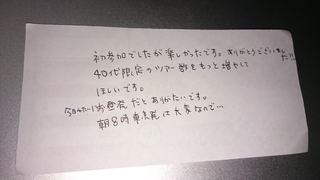 初参加でしたが楽しかったです。ありがとうございました!!
40代限定のツアー数をもっと増やして
ほしいです。
今回みたいにお昼発だとありがたいです。
朝8時東京発は大変なので…